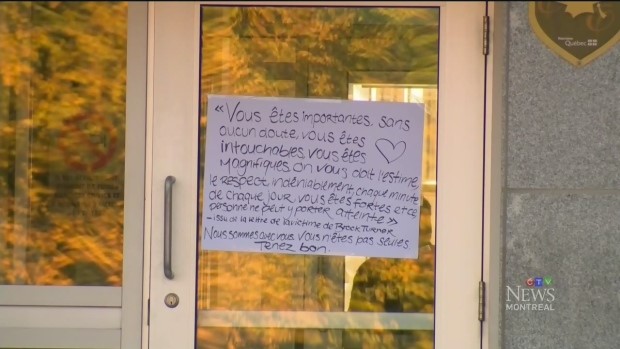 « Vous êtes importantes. Sans
aucun doute, vous êtes
intouchables, vous êtes
magnifiques. On vous doit l'estime,
le respect, indéniablement, chaque minute
de chaque jour, vous êtes fortes et ce
personne ne peut y porter atteinte »
- issu de la lettre de la victime de Brock Turner
Nous sommes avec vous. Vous n'êtes pas seules
Tenez bon.
Québec
CTV
NEWS
MONTREAL